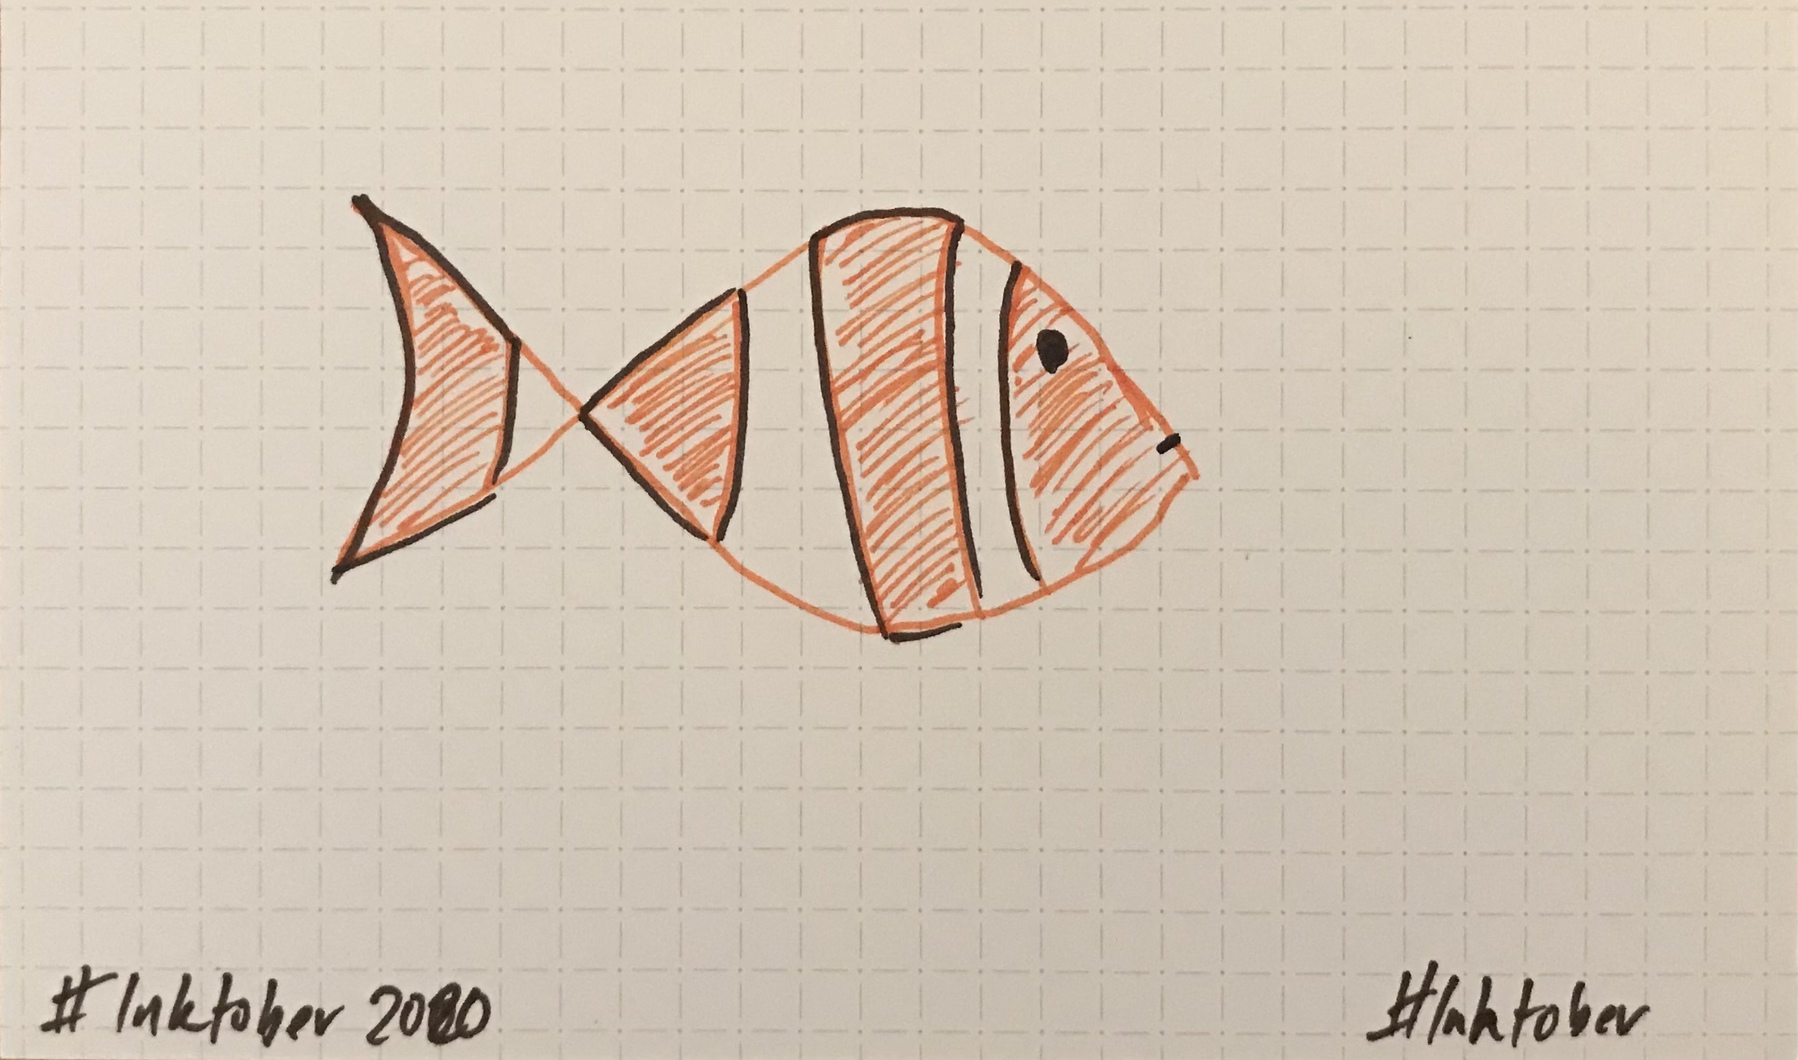 #Inktober 2020
#Inktober